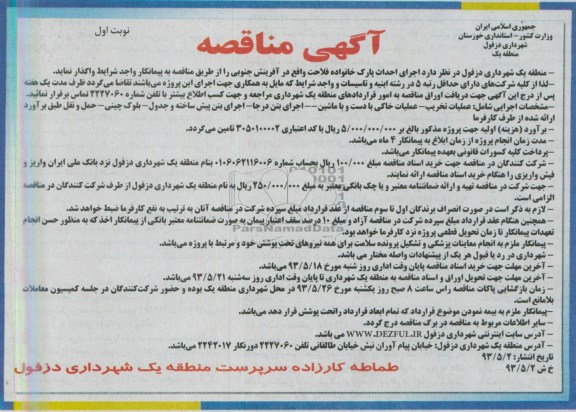 جمهوری اسلامی ایران
وزارت کشور - استانداری خوزستان
شهرداری دزفول
منطقه یک
نوبت اول
آگهی مناقصه
- منطقه یک شهرداری دزفول در نظر دارد اجرای احداث پارک خانواده فلاحت واقع در آفرینش جنوبی را از طریق مناقصه به پیمانکار واجد شرایط واگذار نماید.
- لذا از کلیه شرکت‌های دارای حداقل رتبه ۵ در رشته ابنیه و تاسیسات و واجد شرایط که مایل به همکاری جهت اجرای این پروژه می‌باشند تقاضا می‌گردد ظرف مدت یک هفته
پس از درج این آگهی جهت دریافت اوراق مناقصه به امور قراردادهای منطقه یک شهرداری مراجعه و جهت کسب اطلاع بیشتر با تلفن شماره ۲۲۲۷۰۶۰ تماس برقرار نمائید.
- مشخصات اجرایی شامل: عملیات تخریب - عملیات خاکی با دست و با ماشین - اجرای بتن درجا - اجرای بتن پیش ساخته و جدول - بلوک چینی - حمل و نقل طبق برآورد
ارائه شده از طرف کارفرما
- برآورد (هزینه) اولیه جهت پروژه مذکور بالغ بر ۵/۰۰۰/۰۰۰/۰۰۰ ریال با کد اعتباری ۳۰۵۰۱۰۰۰۲ تامین می‌گردد.
- مدت زمان انجام پروژه از زمان ابلاغ به پیمانکار ۴ ماه می‌باشد.
- پرداخت کلیه کسورات قانونی بعهده پیمانکار می‌باشد.
- شرکت کنندگان در مناقصه جهت خرید اسناد مناقصه مبلغ ۱۰۰/۰۰۰ ریال بحساب شماره ۰۱۰۶۰۶۲۱۱۶۰۰۶ بنام منطقه یک شهرداری دزفول نزد بانک ملی ایران واریز و
فیش واریزی را هنگام خرید اسناد مناقصه ارائه نمایند.
- جهت شرکت در مناقصه تهیه و ارائه ضمانتنامه معتبر و یا چک بانکی معتبر به مبلغ ۲۵۰/۰۰۰/۰۰۰ ریال به نام منطقه یک شهرداری دزفول از طرف شرکت کنندگان در مناقصه
الزامی است.
- لازم به ذکر است در صورت انصراف برندگان اول تا سوم مناقصه از عقد قرارداد مبلغ سپرده شرکت در مناقصه آنان به ترتیب به نفع کارفرما ضبط خواهد شد.
- همچنین هنگام عقد قرارداد مبلغ سپرده شرکت در مناقصه آزاد و مبلغ ۱۰ درصد سقف اعتبار پیمان به صورت ضمانتنامه معتبر بانکی از پیمانکار اخذ که به منظور حسن انجام
تعهدات پیمانکار تا زمان تحویل قطعی پروژه نزد کارفرما خواهد بود.
- پیمانکار ملزم به انجام معاینات پزشکی و تشکیل پرونده سلامت برای همه نیروهای تحت پوشش خود و مرتبط با پروژه می‌باشد.
- شهرداری در رد یا قبول هر یک از پیشنهادات واصله مختار می باشد.
- آخرین مهلت جهت خرید اسناد مناقصه پایان وقت اداری روز شنبه مورخ ۹۳/۵/۱۸ می‌باشد.
- آخرین مهلت جهت تحویل اوراق و اسناد مناقصه به منطقه یک شهرداری تا پایان وقت اداری روز سه‌شنبه ۹۳/۵/۲۱ می‌باشد.
- زمان بازگشایی پاکات مناقصه راس ساعت ۸ صبح روز یکشنبه مورخ ۹۳/۵/۲۶ در محل شهرداری منطقه یک بوده و حضور شرکت‌کنندگان در جلسه کمیسیون معاملات
بلامانع است.
- پیمانکار ملزم به بیمه نمودن موضوع قرارداد که تمام ابعاد قرارداد راتحت پوشش قرار دهد می‌باشد.
- سایر اطلاعات مربوط به مناقصه در برگه مناقصه درج گردد.
- آدرس سایت اینترنتی شهرداری دزفول WWW.DEZFUL.IR می باشد.
- آدرس منطقه یک شهرداری دزفول: خیابان پیام آوران نبش خیابان طالقانی تلفن ۲۲۲۷۰۶۰ دورنگار ۲۲۴۲۰۱۷ می‌باشد.
تاریخ انتشار: ۹۳/۵/۲
خ ش ۹۳/۵/۲
طماطه کارزاده سرپرست منطقه یک شهرداری دزفول
ParsNamadData